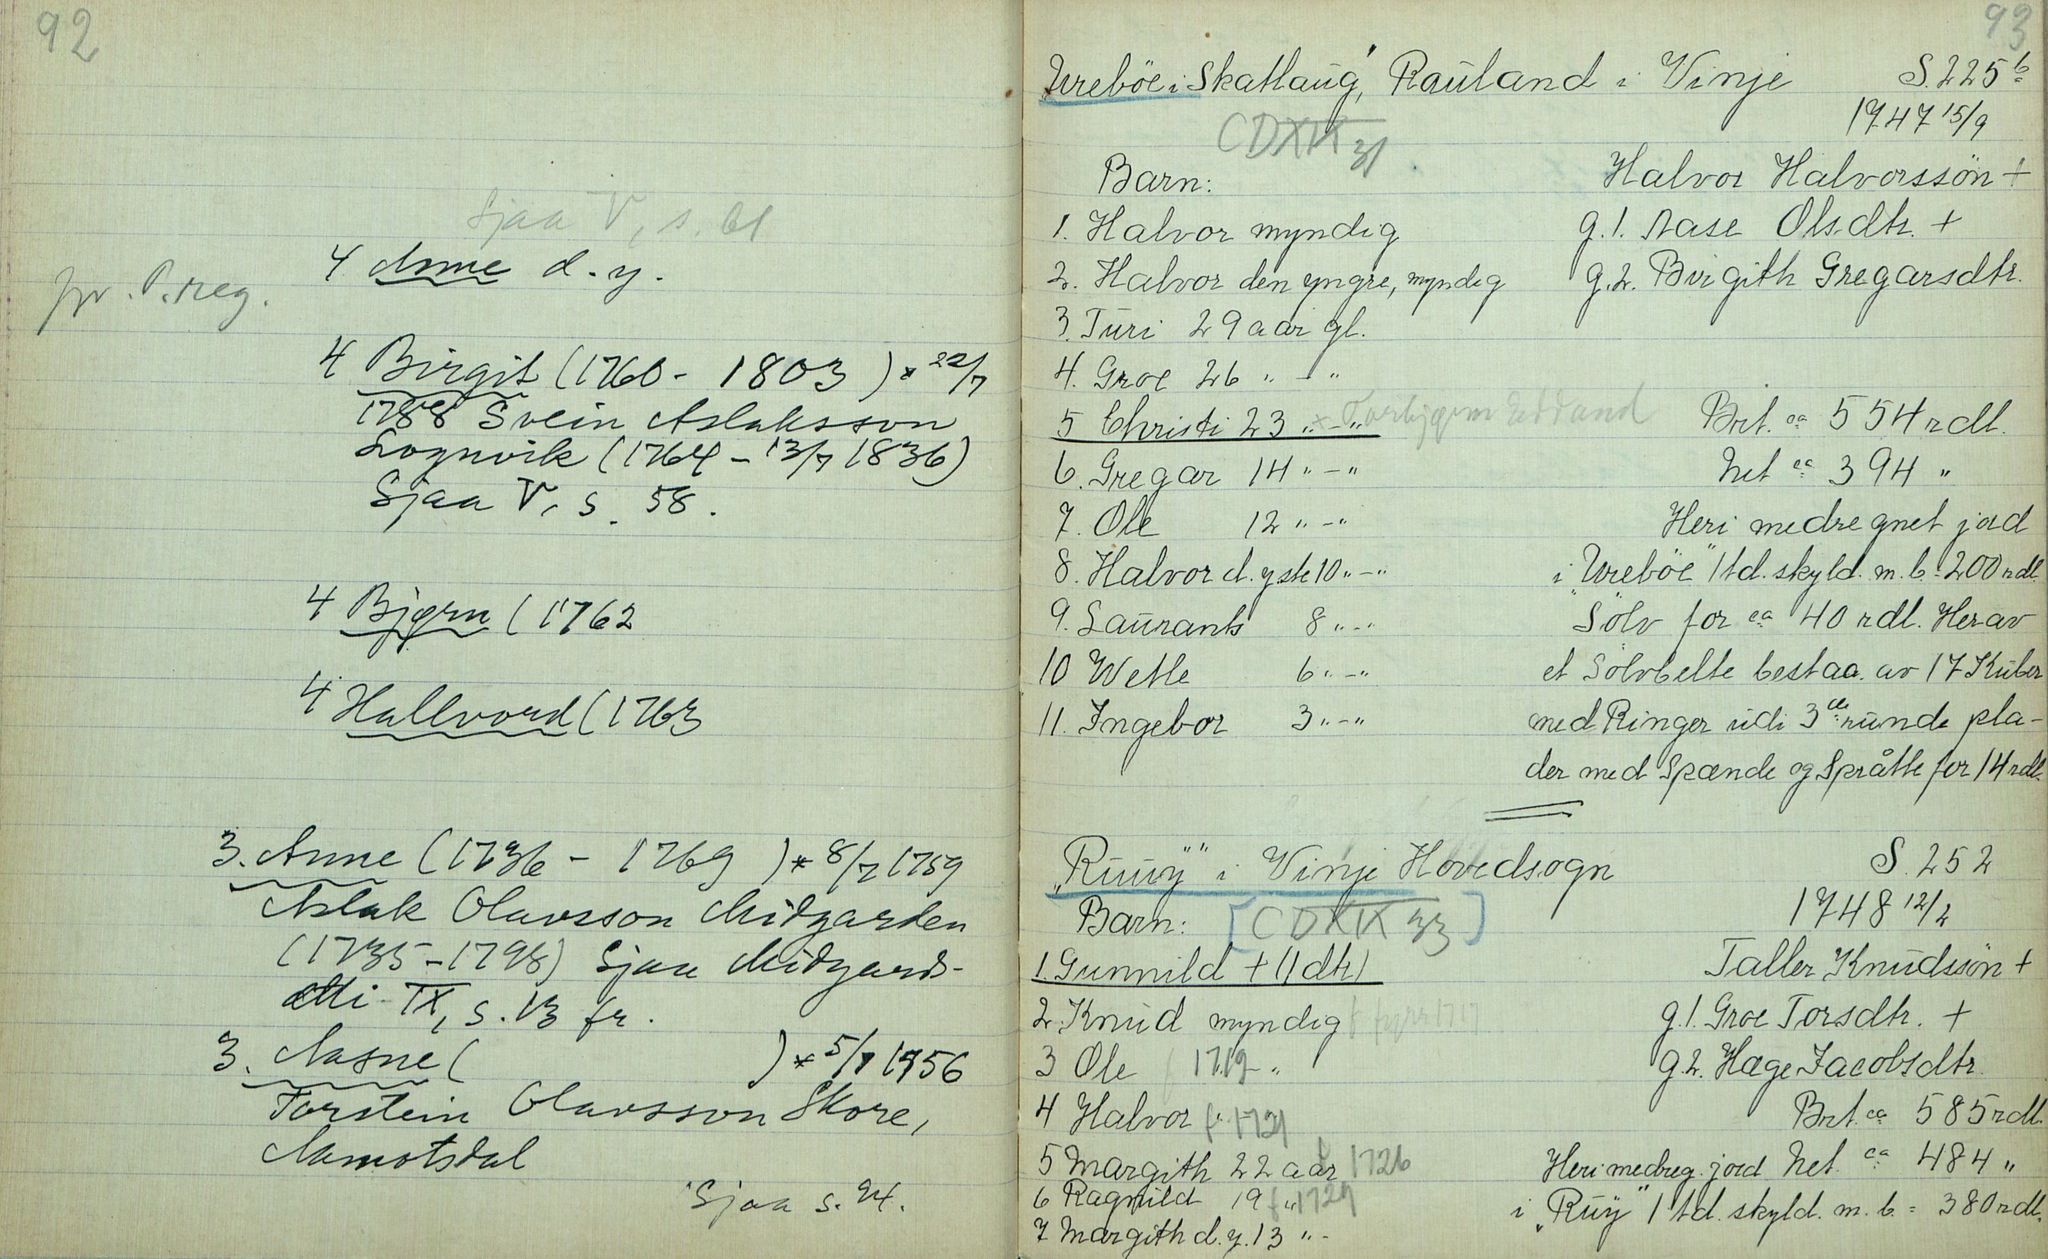 92
Sjaa V, s. 61
4 Anne d.y.
jvr. P.reg.
4 Birgit (1760 - 1803 ) * 22/7
1788 Svein Aslaksson
Lognvik (1764 - 13/7 1836)
Sjaa V, s. 58.
4 Bjørn (1762
4 Hallvord (1763
3. Anne (1736 - 1769 ) * 8/7 1759
Aslak Olavsson Midgarden
(1735 - 1798) Sjaa Midgards-
ætti IX, s. 13 fr.
3. Aasne ( ) * 5/7 1756
Torstein Olavsson Skore,
Aamotsdal
Sjaa s. 94.
93
"Ureböe i Skatlaug", Rauland i Vinje S. 225 b
1747 15/9
CDXIX 31
Barn: Halvor Halvorssön +
1. Halvor myndig g.1. Aase Olsdtr. +
2. Halvor den yngre, myndig g.2. Birgith Gregarsdtr.
3. Turi 29 aar gl.
4. Groe 26 " - "
5 Christi 23 " - " x Torbjørn Edland Brt. ca 554 rdl.
6. Gregar 14 " - " Net ca 394 "
7. Ole 12 " - " Heri medregnet jord
8. Halvor d. yste 10 " - " i "Ureböe" 1 td. skyld. m. b. = 200 rdl.
9. Laurants 8 " - " Sölv for ca 40 rdl. Herav
10 Wetle 6 " - " et Sölvbelte bestaa. av 17 Kuber
11. Ingebor 3 " - " med Ringer udi 3de runde pla-
der med Spænde og Språtte for 14 rdl.
"Ruuy" i Vinje Hovedsogn S. 252
1748 12/2
Barn: [CDXIX 33]
1. Gunnild + (1 dtr) Taller Knudssön +
2. Knud myndig f fyrr 1717 g.1. Groe Torsdtr. +
3 Ole f 1719 - " g.2. Hæge Jacobsdtr.
4 Halvor " - " f. 1721 Brt. ca 585 rdl.
5 Margith 22 aar f 1726 Heri medreg. jord Net. ca 484 "
6 Ragnild 19 " f 1729 i "Ruy" 1 td. skyld. m. b. = 380 rdl.
7 Margith d.y. 13 " -